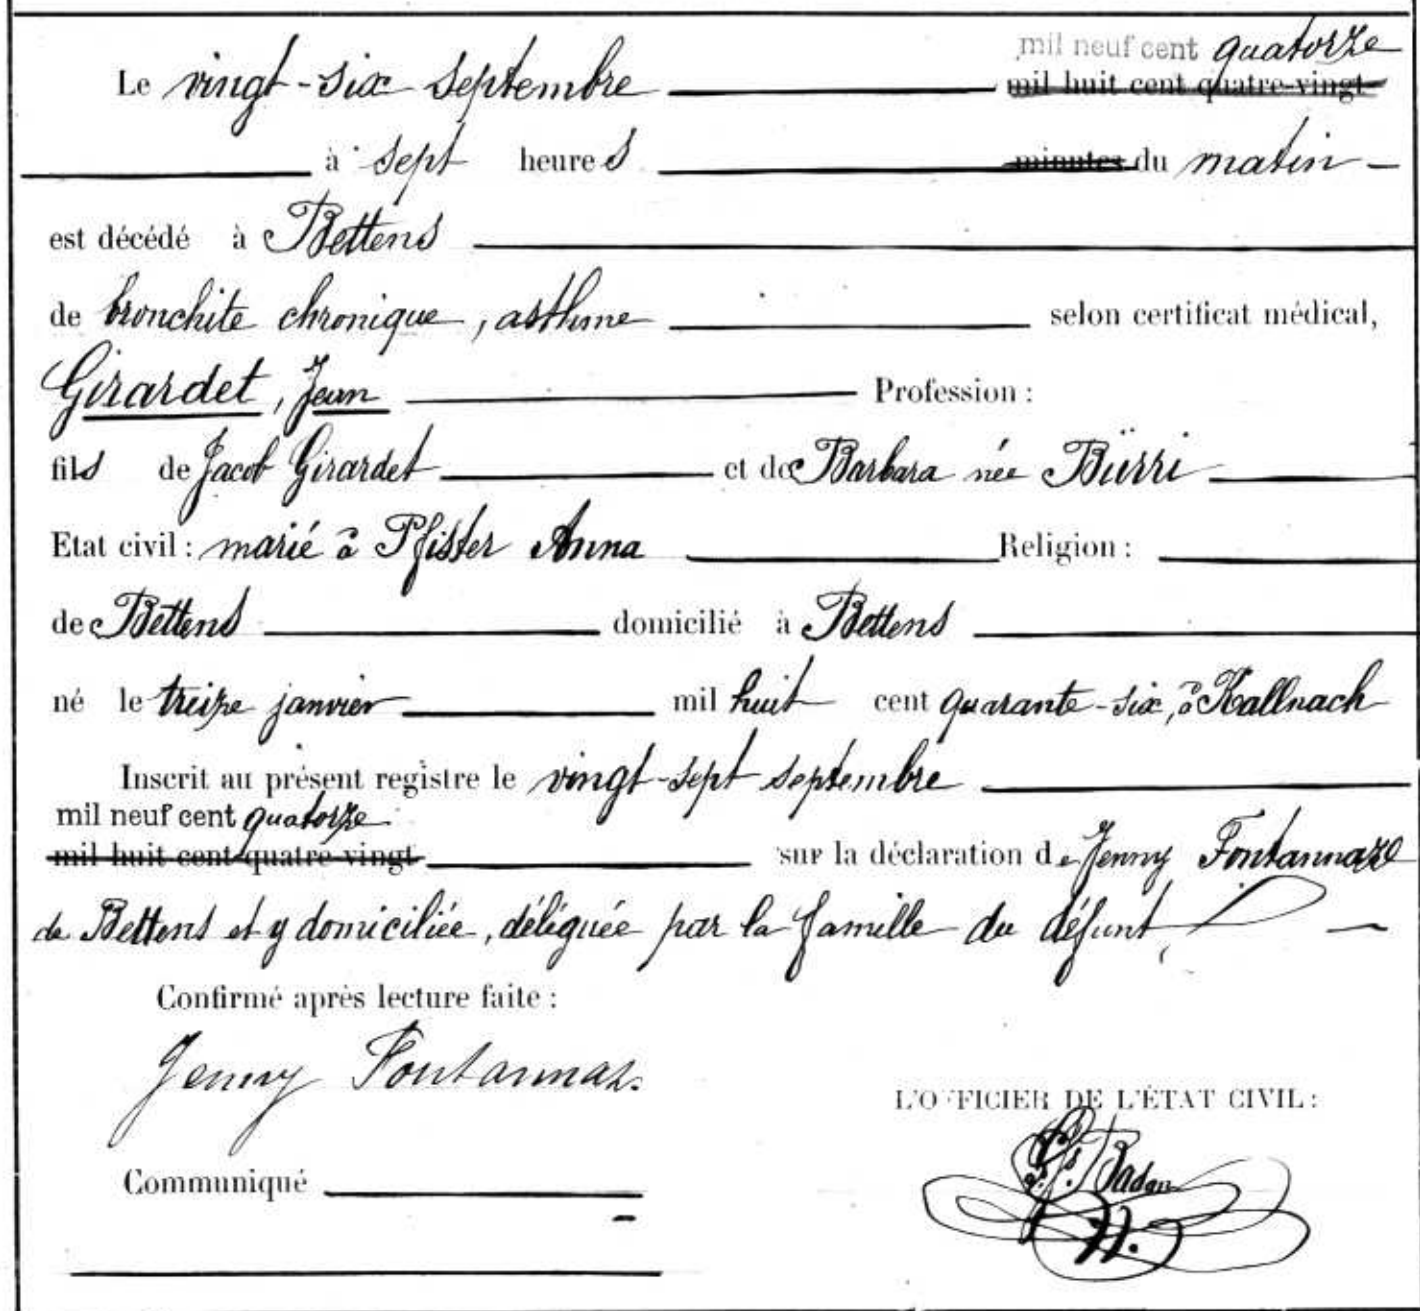 mil neuf cent quatorze
Le vingt-six septembre mil huit cent quatre-vingt
à sept heures minutes du matin
est décédé à Bettens
de bronchite chronique, asthme selon certificat médical,
Girardet, Jean Profession :
fils de Jacob Girardet et de Barbara née Bürri
Etat civil : marié à Pfister Anna Religion :
de Bettens domicilié à Bettens
né le treize janvier mil huit cent quarante-six, à Kallnach
Inscrit au présent registre le vingt-sept septembre
mil neuf cent quatorze
mil huit cent quatre-vingt sur la déclaration de Jenny Fontannaz
de Bettens et y domiciliée, déléguée par la famille du défunt.
Confirmé après lecture faite :
Jenny Fontannaz.
L'OFFICIER DE L'ÉTAT CIVIL :
Badan
Communiqué